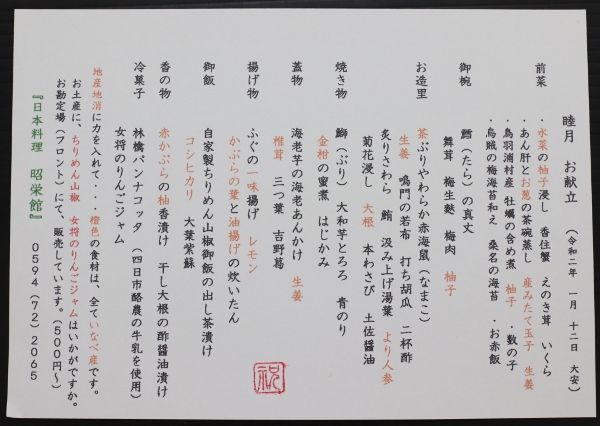 睦月　お献立　（令和二年　一月　十二日　大安）
前菜　・水菜の柚子浸し　香住蟹　えのき茸　いくら
・あん肝とお葱の茶碗蒸し　産みたて玉子　生姜
・鳥羽浦村産　牡蠣の含め煮　柚子　・数の子
・烏賊の梅海苔和え　桑名の海苔　・お赤飯
御椀　鱈（たら）の真丈
舞茸　梅生麩　梅肉　柚子
お造里　茶ぶりやわらか赤海鼠（なまこ）
生姜　鳴門の若布　打ち胡瓜　二杯酢
炙りさわら　鮪　汲み上げ湯葉　より人参
菊花浸し　大根　本わさび　土佐醤油
焼き物　鰤（ぶり）　大和芋とろろ　青のり
金柑の蜜煮　はじかみ
蓋物　海老芋の海老あんかけ　生姜
椎茸　三つ葉　吉野葛
揚げ物　ふぐの一味揚げ　レモン
かぶらの葉と油揚げの炊いたん
御飯　自家製ちりめん山椒御飯の出し茶漬け
コシヒカリ　大葉紫蘇
香の物　赤かぶらの柚香漬け　干し大根の酢醤油漬け
冷菓子　林檎パンナコッタ　（四日市酪農の牛乳を使用）
女将のりんごジャム
地産地消に力を入れて・・・橙色の食材は、全ていなべ産です。
お土産に、ちりめん山椒　女将のりんごジャムはいかがですか。
お勘定場（フロント）にて、販売しています。（５００円～）
『日本料理　昭栄館』　０５９４（７２）２０６５
祝